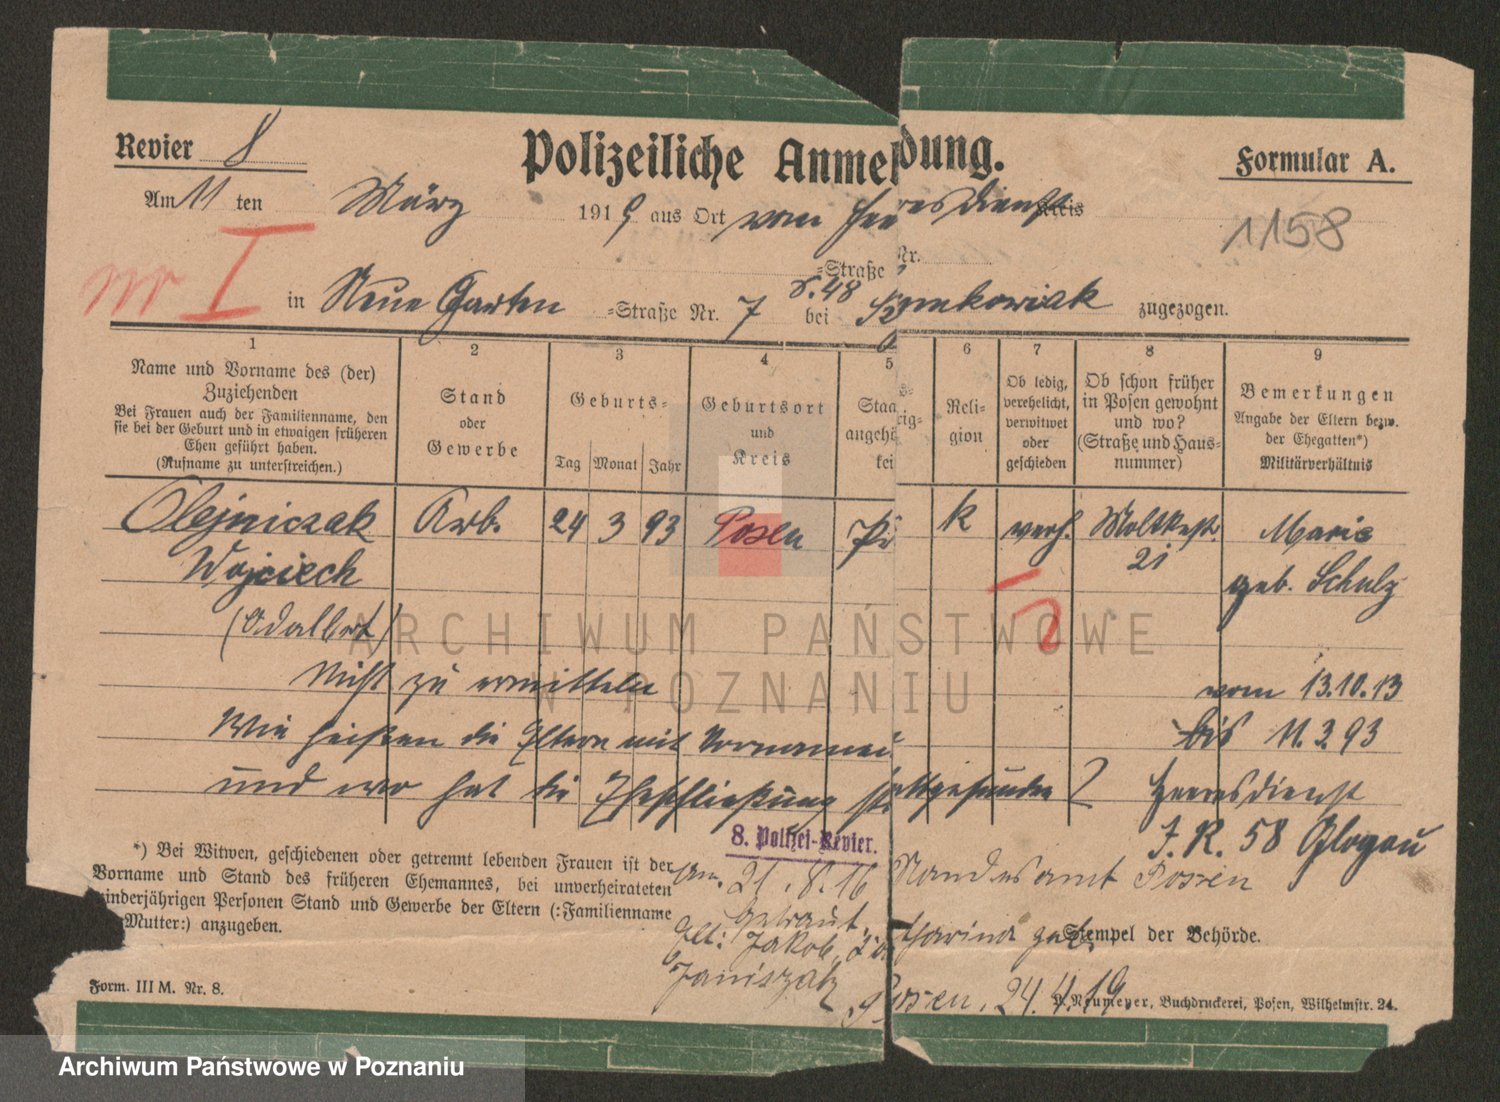 Revier 8
Polizeiliche Anmeldung.
Formular A.
Am 11 ten März 1919 aus Ort vom Heeresdienst Kreis
1158
=Straße Nr.
nr I
in Neue Garten =Straße Nr. 7 bei zugezogen.
1 2 3 4 5 6 7 8 9
Name und Vorname des (der)
Zuziehenden
Bei Frauen auch der Familienname, den
sie bei der Geburt und in etwaigen früheren
Ehen geführt haben.
(Rufname zu unterstreichen.)
Stand
oder
Gewerbe
Geburts=
Tag Monat Jahr
Geburtsort
und
Kreis
Staa
angehö
kei
s=
rig=
Reli=
gion
Ob ledig,
verehelicht,
verwitwet
oder
geschieden
Ob schon früher
in Posen gewohnt
und wo?
(Straße und Haus=
nummer)
Bemerkungen
Angabe der Eltern bezw.
der Ehegatten*)
Militärverhältnis
Olejniczak Arb. 24 3 93 Posen k verh. Moltkestr. Marie
Wojciech 21 geb. Schulz
(Adalbert)
Nicht zu ermitteln vom 13.10.13
Wie heißen die Eltern mit Vornamen bis 11.3 93
und wo hat die Eheschließung stattgefunden? Heeresdienst
I. R. 58 Glogau
8. Polizei-Revier.
*) Bei Witwen, geschiedenen oder getrennt lebenden Frauen ist der
Vorname und Stand des früheren Ehemannes, bei unverheirateten
minderjährigen Personen Stand und Gewerbe der Eltern (:Familienname
Mutter:) anzugeben.
Am. 21.8.16 Standesamt Posen
getraut.
Elt: Jakob, Katharina geb.
Janiszak
Stempel der Behörde.
Posen, 24.4.19
Form. III M. Nr. 8.
Neumeyer, Buchdruckerei, Posen, Wilhelmstr. 24.
ARCHIWUM PAŃSTWOWE
W POZNANIU
Archiwum Państwowe w Poznaniu